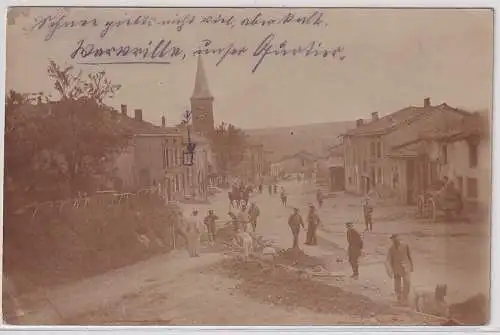 Schnee giebts nicht viel, aber kalt.
Warvrille, unser Quartier.